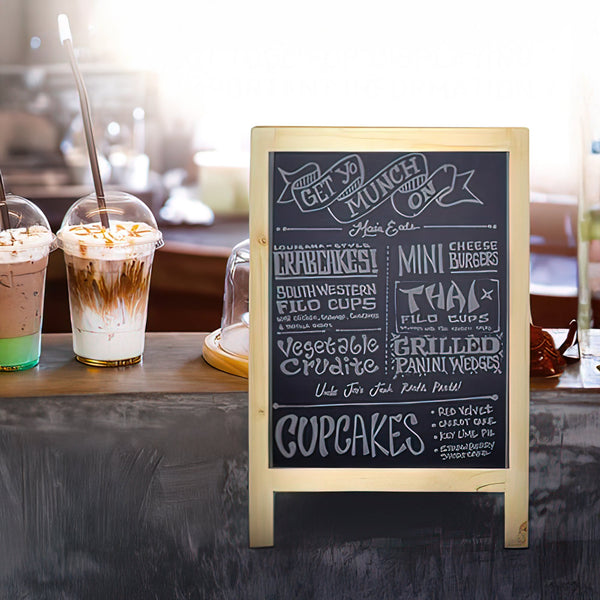 GET YO
MUNCH
ON
Main Eats
LOUISIANA-STYLE
CRABCAKES!
SOUTHWESTERN
FILO CUPS
WITH CHICKEN,
Vegetable
Crudite
MINI CHEESE
BURGERS
THAI
FILO CUPS
GRILLED
PANINI WEDGES
Uncle Joe's
CUPCAKES
• RED VELVET
• CARROT CAKE
• KEY LIME PIE
• STRAWBERRY
SHORTCAKE